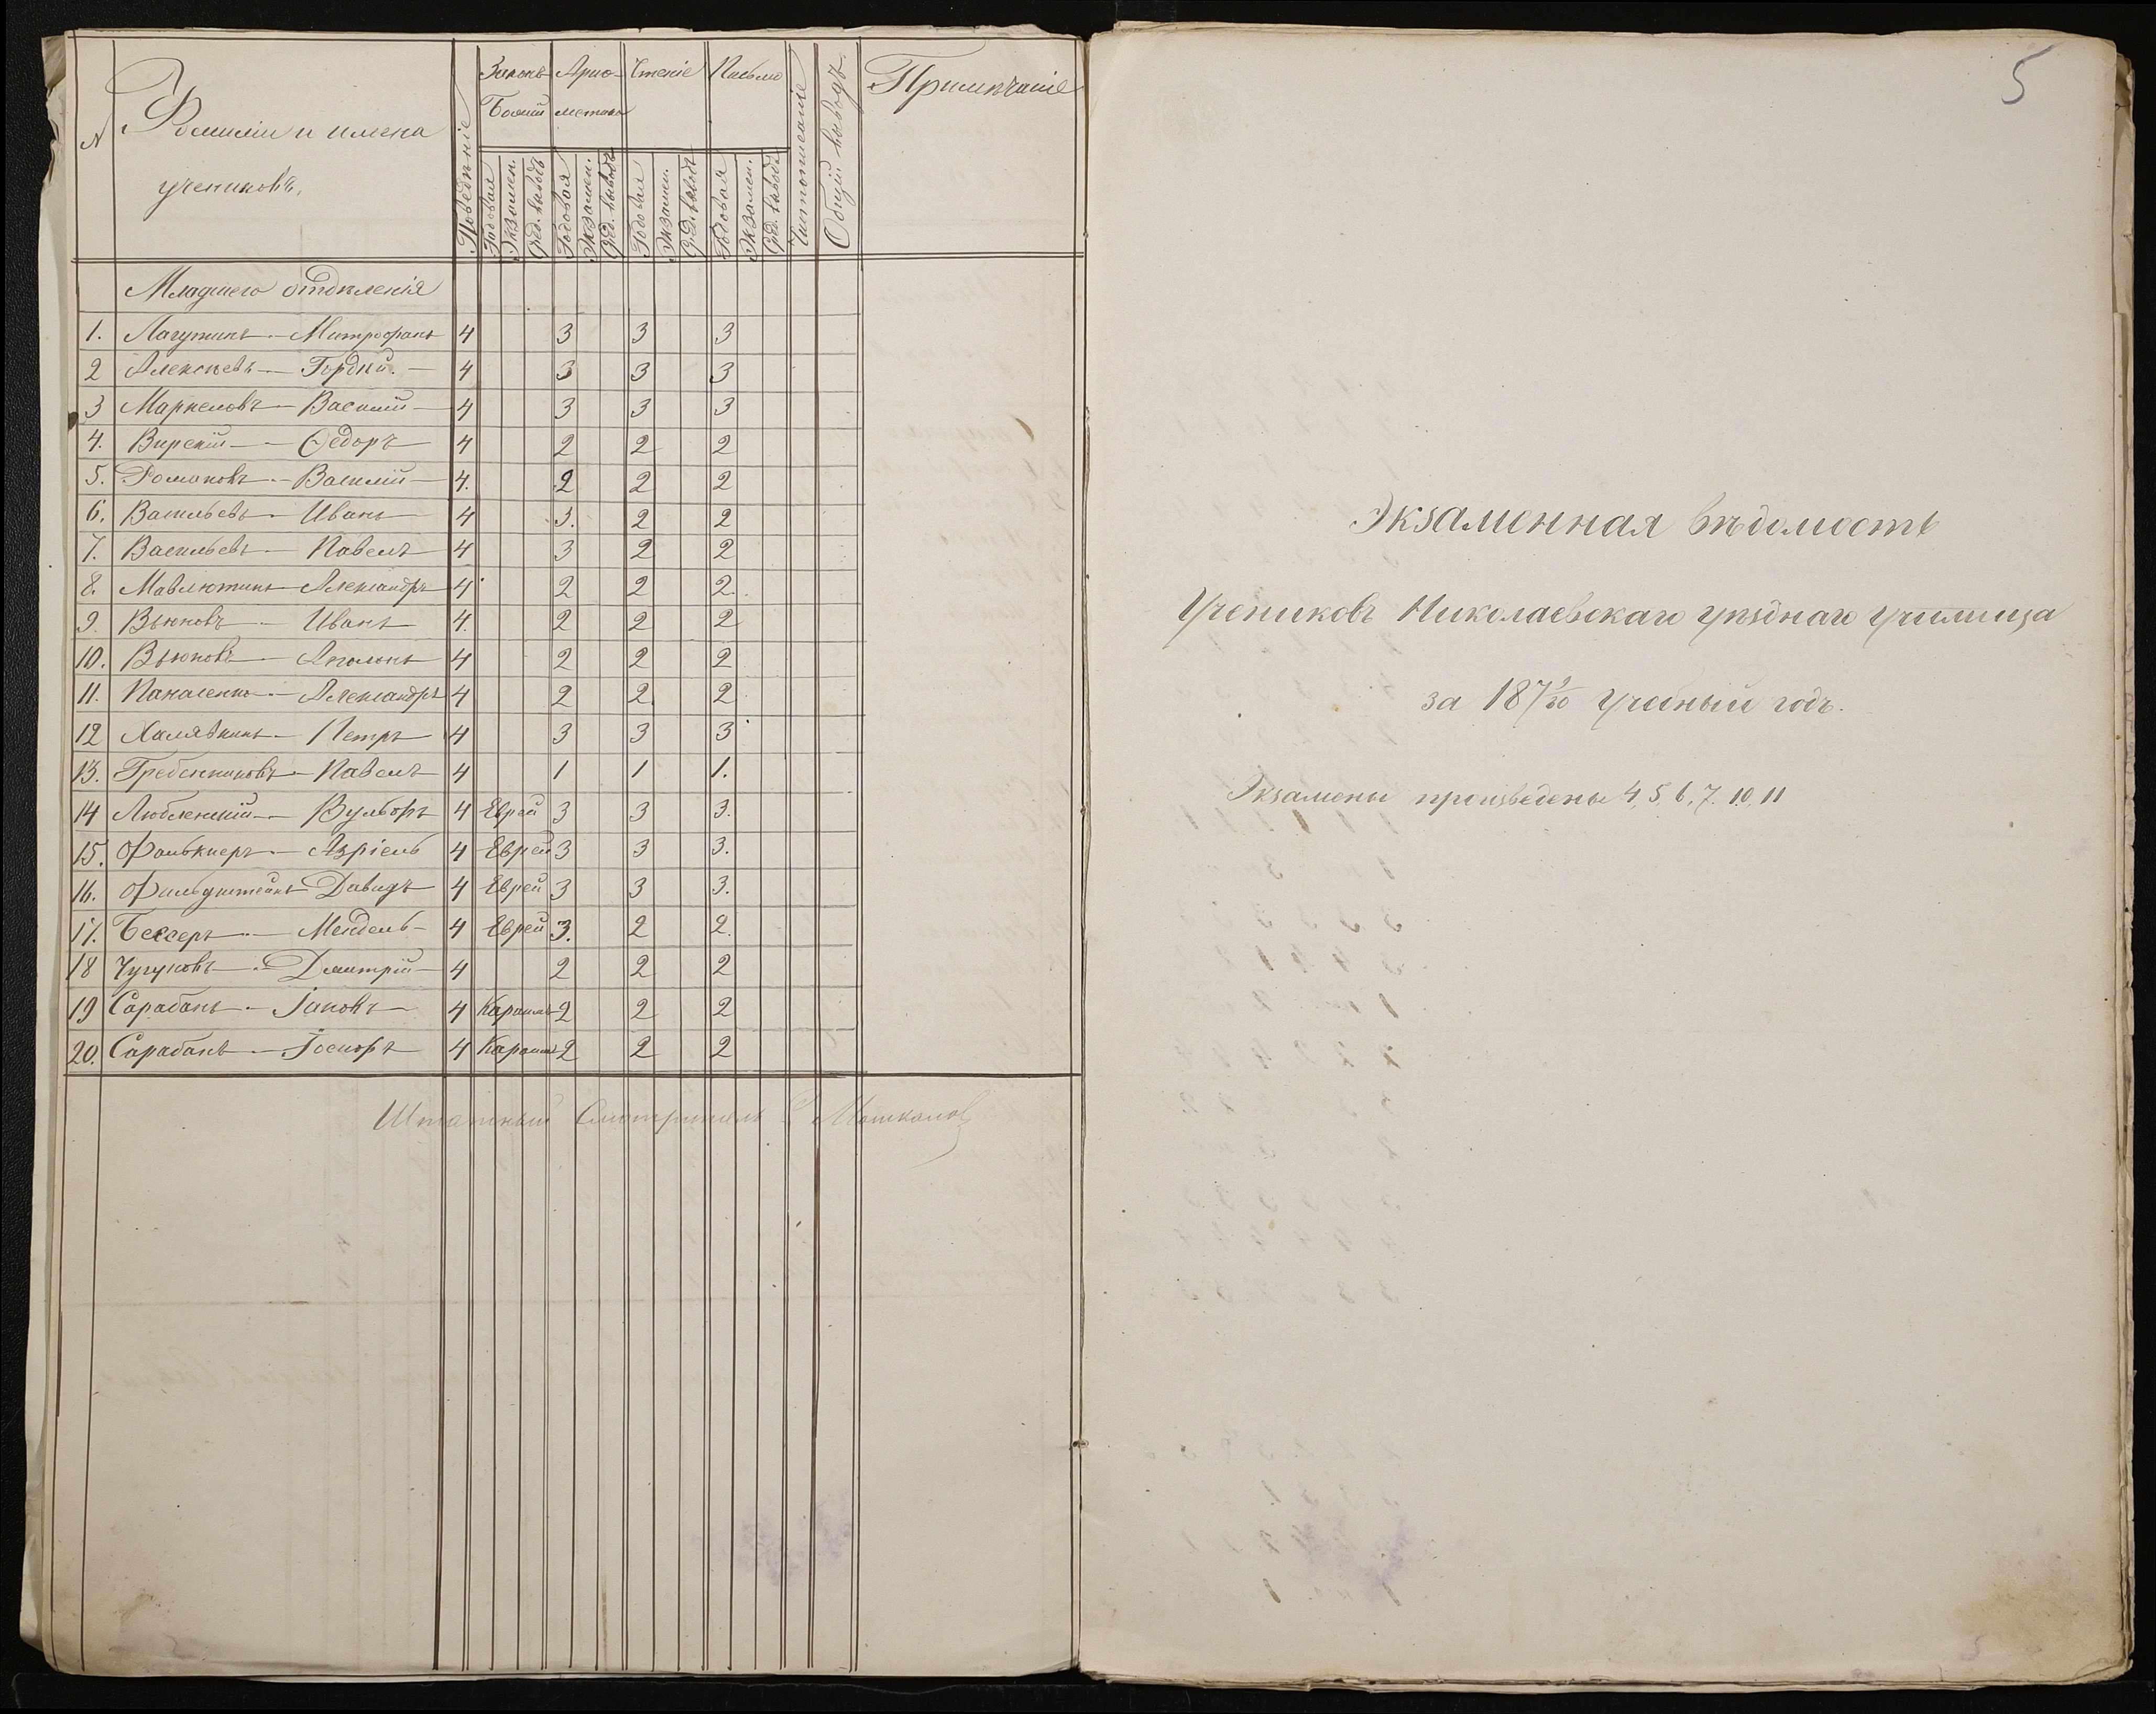 № Фамиліи и имена учениковъ. Поведеніе Законъ Божій Ариѳметика Чтеніе Письмо Чистописаніе Общій выводъ. Примѣчаніе
Годовая Экзамен. Сред. выводъ Годовая Экзамен. Сред. выводъ Годовая Экзамен. Сред. выводъ Годовая Экзамен. Сред. выводъ
Младшего отдѣленія
1. Лагутинъ - Митрофанъ 4 3 3 3
2 Алексѣевъ - Гордѣй. 4 3 3 3
3 Маркеловъ - Василій 4 3 3 3
4. Вирскій - Ѳедоръ 4 2 2 2
5. Романовъ - Василій 4. 2 2 2
6. Васильевъ - Иванъ 4 3. 2 2
7. Васильевъ - Павелъ 4 3 2 2
8. Мавлютинъ - Александръ 4 2 2 2.
9. Вьюновъ - Иванъ 4. 2 2 2
10. Вьюновъ - Аполонъ 4 2 2 2
11. Панасенко - Александръ 4 2 2. 2
12 Халявкинъ - Петръ 4 3 3 3
13. Гребенниковъ - Павелъ 4 1 1 1.
14 Люблинскій - Вульфъ 4 Еврей 3 3 3.
15. Фалькнеръ - Азріель 4 Еврей 3 3 3.
16. Фильдштейнъ Давидъ 4 Еврей 3 3 3.
17. Бессеръ - Мендель 4 Еврей 3. 2 2.
18 Чугуновъ - Дмитрій 4 2 2 2
19 Сарабанъ - Іаковъ 4 Караимъ 2 2 2
20. Сарабанъ - Іосифъ 4 Караимъ 2 2 2
Штатный Смотритель
5
Экзаменная вѣдомость
Учениковъ Николаевскаго уѣзднаго училища
за 18 79/80 учебный годъ.
Экзамены произведены 4, 5, 6, 7. 10, 11